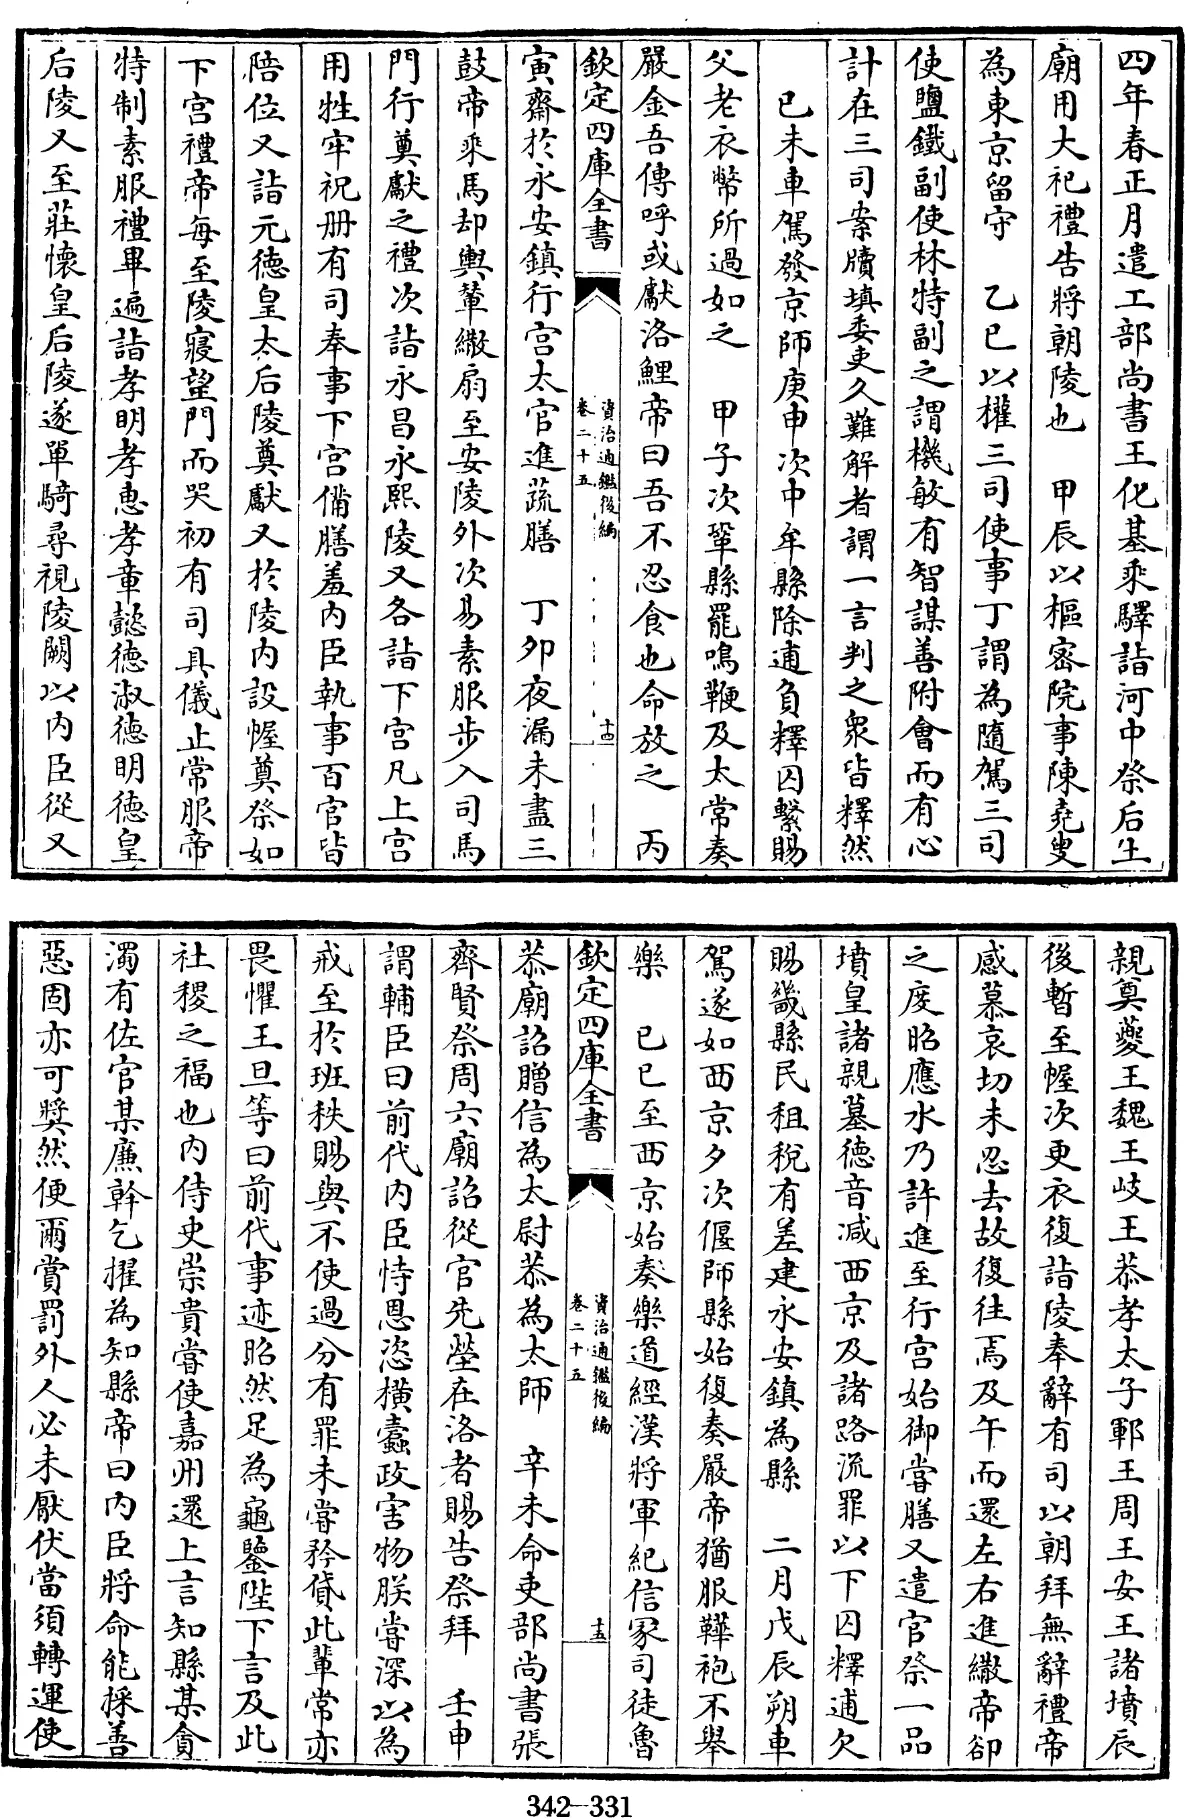 四年春正月遣工部尚書王化基乘驛詣河中祭后土
廟用大祀禮告將朝陵也　甲辰以樞密院事陳堯叟
為東京留守　乙巳以權三司使事丁謂為隨駕三司
使鹽鐵副使林特副之謂機敏有智謀善附會而有心
計在三司案牘填委吏久難解者謂一言判之衆皆釋然
已未車駕發京師庚申次中牟縣除逋負釋囚繫賜
父老衣幣所過如之　甲子次鞏縣罷鳴鞭及太常奏
嚴金吾傳呼或獻洛鯉帝曰吾不忍食也命放之　丙
欽定四庫全書
資治通鑑後編
卷二十五
十四
寅齋於永安鎮行宮太官進蔬膳　丁卯夜漏未盡三
鼓帝乘馬却輿輦繖扇至安陵外次易素服步入司馬
門行奠獻之禮次詣永昌永熙陵又各詣下宮凡上宮
用牲牢祝册有司奉事下宮備膳羞内臣執事百官皆
陪位又詣元德皇太后陵奠獻又於陵内設幄奠祭如
下宮禮帝每至陵寢望門而哭初有司具儀止常服帝
特制素服禮畢遍詣孝明孝惠孝章懿德淑德明德皇
后陵又至莊懷皇后陵遂單騎尋視陵闕以内臣從又
親奠夔王魏王岐王恭孝太子鄆王周王安王諸墳辰
後暫至幄次更衣復詣陵奉辭有司以朝拜無辭禮帝
感慕哀切未忍去故復往焉及午而還左右進繖帝卻
之度昭應水乃許進至行宮始御常膳又遣官祭一品
墳皇諸親墓德音減西京及諸路流罪以下囚釋逋欠
賜畿縣民租稅有差建永安鎮為縣　二月戊辰朔車
駕遂如西京夕次偃師縣始復奏嚴帝猶服鞾袍不舉
樂　已巳至西京始奏樂道經漢將軍紀信冢司徒魯
欽定四庫全書
資治通鑑後編
卷二十五
十五
恭廟詔贈信為太尉恭為太師　辛未命吏部尚書張
齊賢祭周六廟詔從官先塋在洛者賜告祭拜　壬申
謂輔臣曰前代内臣恃恩恣横蠹政害物朕嘗深以為
戒至於班秩賜與不使過分有罪未嘗矜貸此輩常亦
畏懼王旦等曰前代事迹昭然足為龜鑒陛下言及此
社稷之福也内侍史崇貴嘗使嘉州還上言知縣某貪
濁有佐官某廉幹乞擢為知縣帝曰内臣將命能採善
惡固亦可奬然便爾賞罰外人必未厭伏當須轉運使
342-331